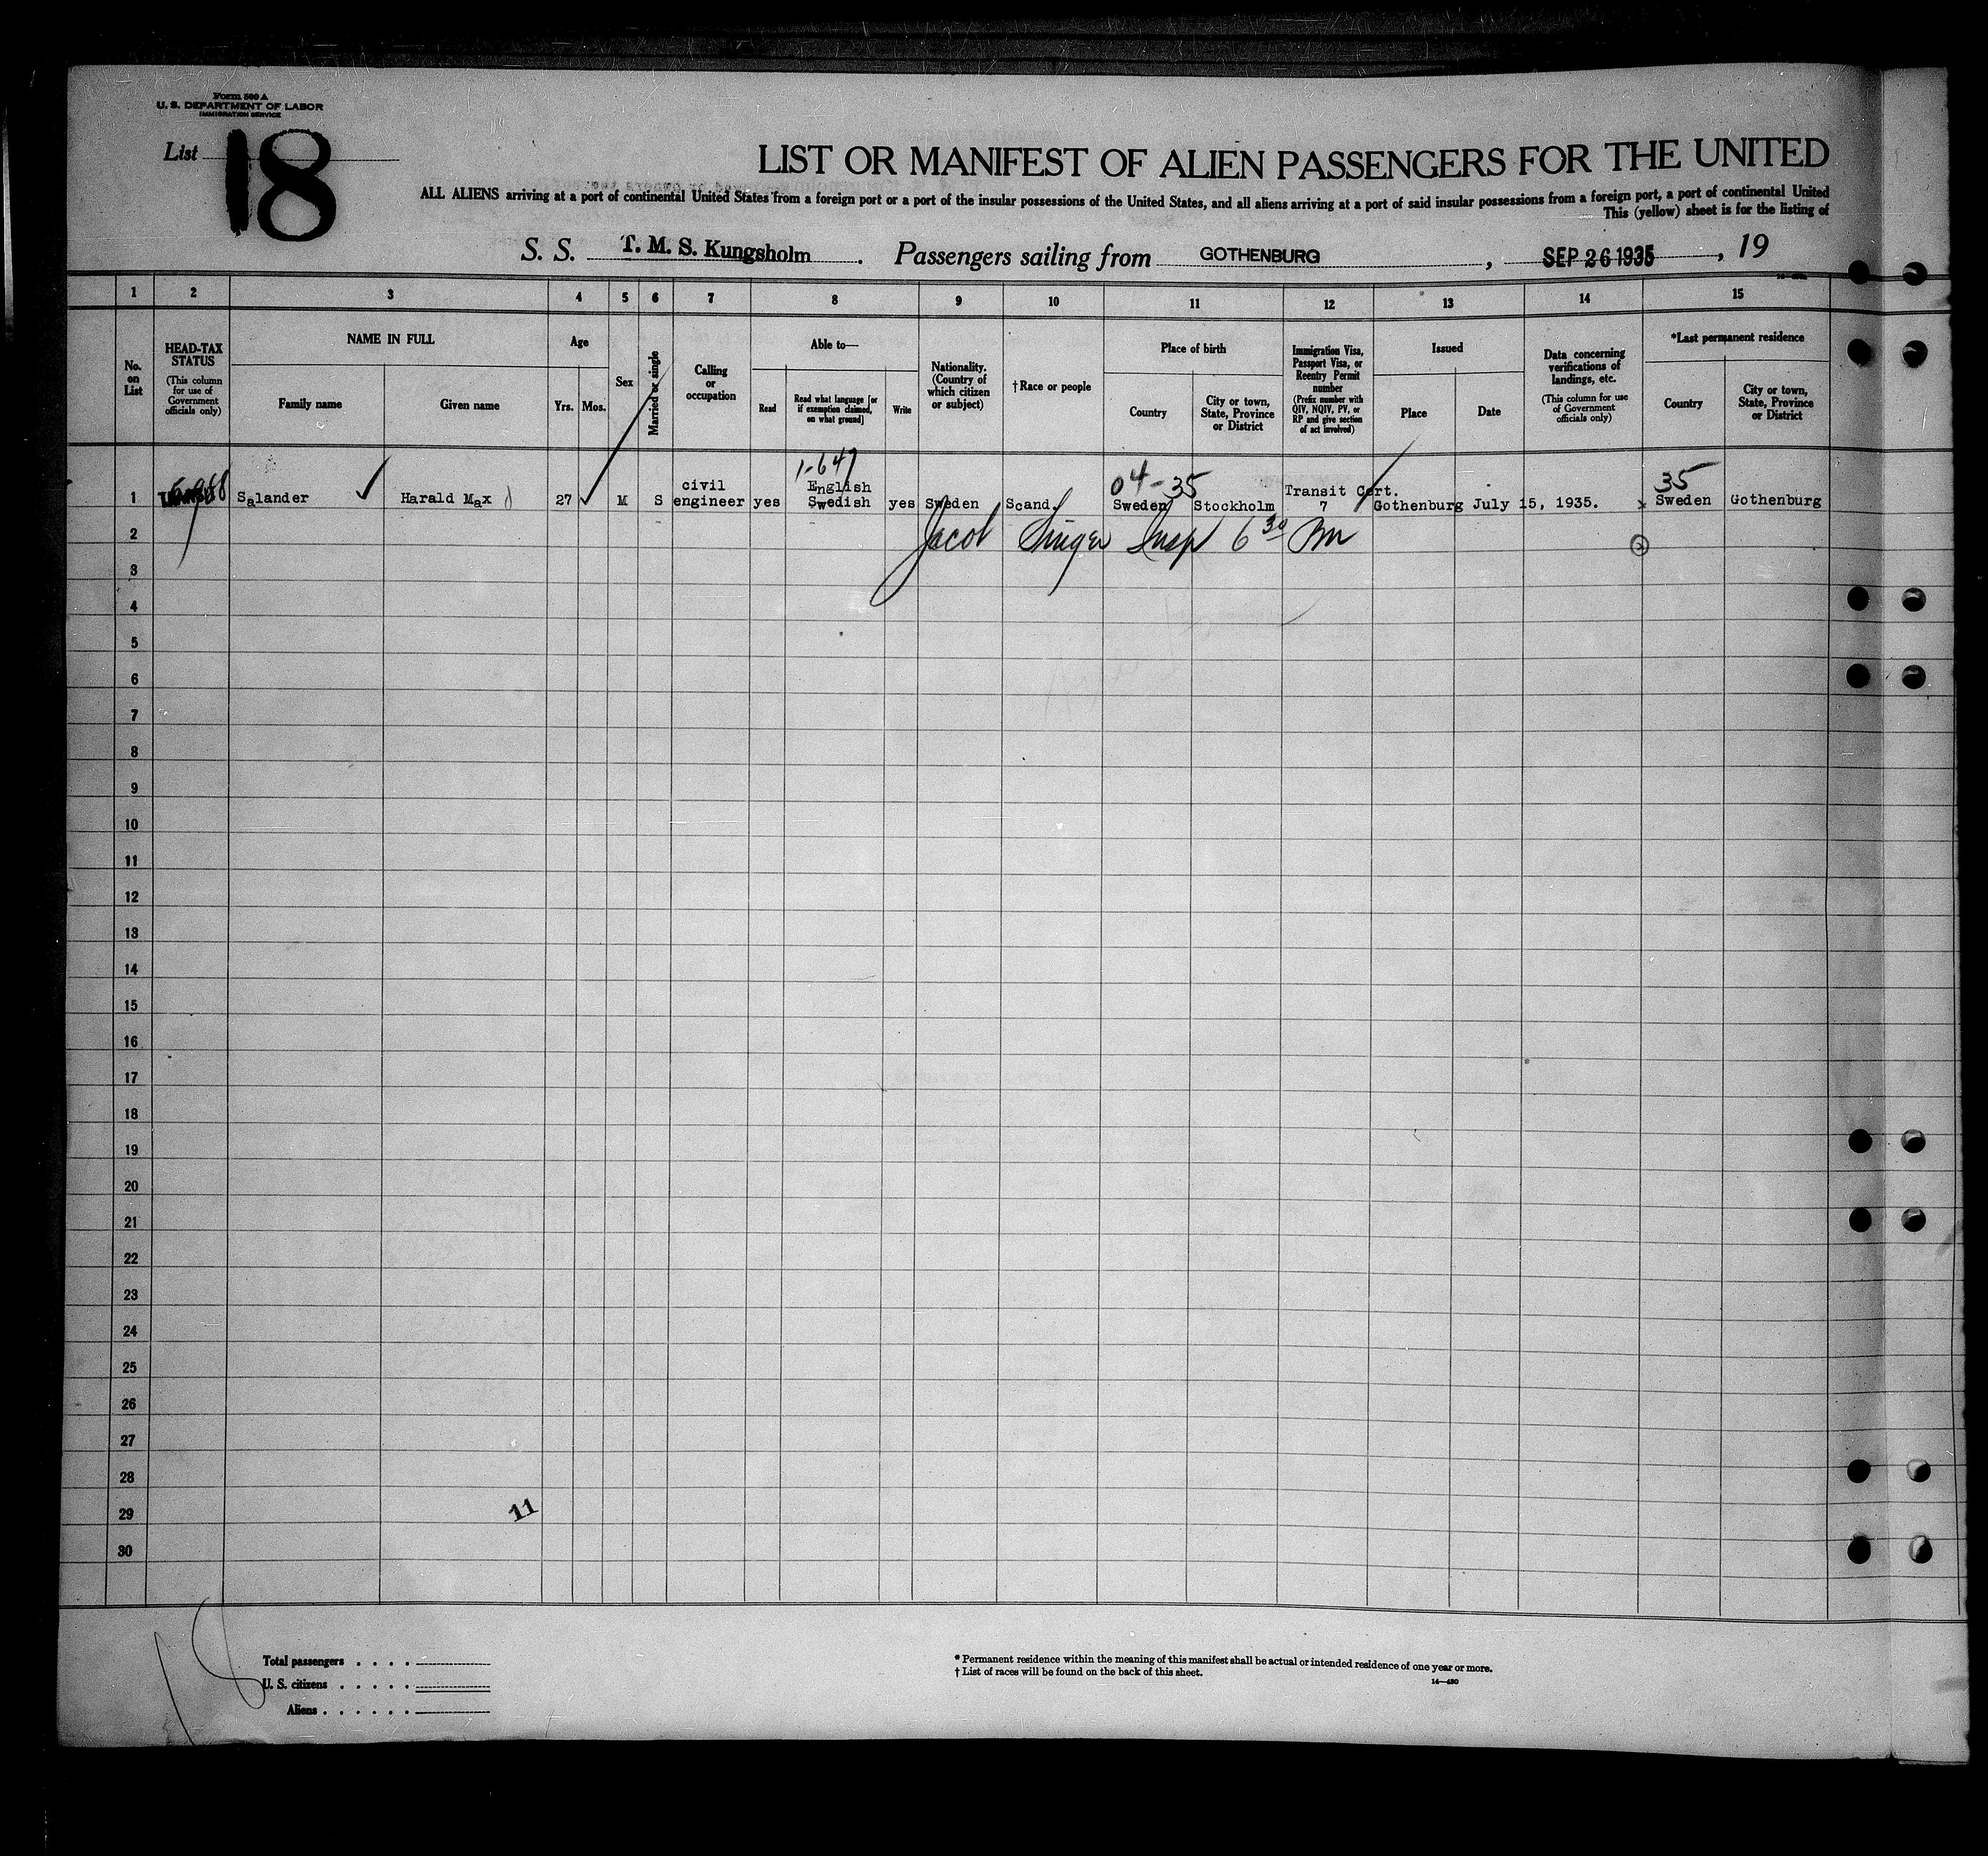 Form 500 A
U. S. DEPARTMENT OF LABOR
IMMIGRATION SERVICE
List 18
LIST OR MANIFEST OF ALIEN PASSENGERS FOR THE UNITED
ALL ALIENS arriving at a port of continental United States from a foreign port or a port of the insular possessions of the United States, and all aliens arriving at a port of said insular possessions from a foreign port, a port of continental United
This (yellow) sheet is for the listing of
S. S. T. M. S. Kungsholm. Passengers sailing from GOTHENBURG, SEP 26 1935, 19
1 2 3 4 5 6 7 8 9 10 11 12 13 14 15
No. on List
HEAD-TAX STATUS
(This column for use of Government officials only)
NAME IN FULL
Family name
Given name
Age
Yrs. Mos.
Sex
Married or single
Calling or occupation
Able to—
Read
Read what language [or if exemption claimed, on what ground]
Write
Nationality. (Country of which citizen or subject)
†Race or people
Place of birth
Country
City or town, State, Province or District
Immigration Visa, Passport Visa, or Reentry Permit number
(Prefix number with QIV, NQIV, PV, or RP and give section of act involved)
Issued
Place
Date
Data concerning verifications of landings, etc.
(This column for use of Government officials only)
*Last permanent residence
Country
City or town, State, Province or District
1-647
04-35
35
1 Salander Harald Max 27 M S civil engineer yes English Swedish yes Sweden Scand. Sweden Stockholm Transit Cert. 7 Gothenburg July 15, 1935. x Sweden Gothenburg
2 Jacob Singer Insp 6 30 Pm
3
4
5
6
7
8
9
10
11
12
13
14
15
16
17
18
19
20
21
22
23
24
25
26
27
28
29
11
30
Total passengers . . . .
U. S. citizens . . . . .
Aliens . . . . . .
* Permanent residence within the meaning of this manifest shall be actual or intended residence of one year or more.
† List of races will be found on the back of this sheet.
14—430